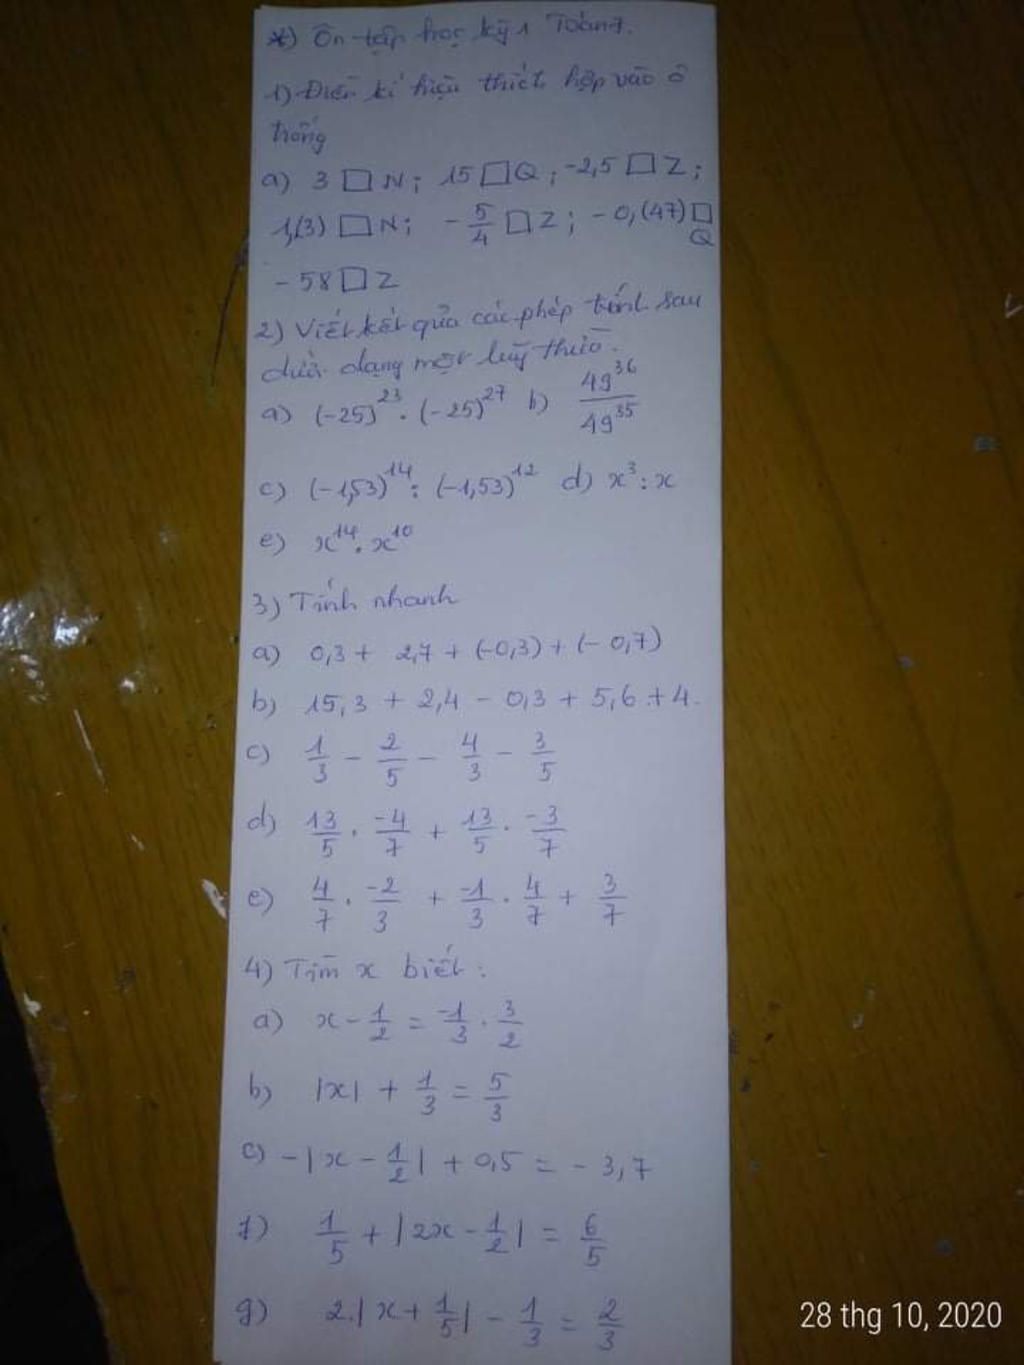 *) Ôn tập học kỳ 1 Toán 7.
1) Điền kí hiệu thích hợp vào ô
trống
a) 3 □ N; 15 □ Q; -2,5 □ Z;
1,(3) □ N; -5/4 □ Z; -0,(47) □
Q
-58 □ Z
2) Viết kết quả các phép tính sau
dưới dạng một luỹ thừa.
a) (-25)^23 . (-25)^27 b) 49^36/49^35
c) (-1,53)^14 : (-1,53)^12 d) x^3 : x
e) x^14 . x^10
3) Tính nhanh
a) 0,3 + 2,7 + (-0,3) + (-0,7)
b) 15,3 + 2,4 - 0,3 + 5,6 + 4.
c) 1/3 - 2/5 - 4/3 - 3/5
d) 13/5 . -4/7 + 13/5 . -3/7
e) 4/7 . -2/3 + -1/3 . 4/7 + 3/7
4) Tìm x biết :
a) x - 1/2 = -1/3 . 3/2
b) |x| + 1/3 = 5/3
c) -|x - 1/2| + 0,5 = -3,7
f) 1/5 + |2x - 1/2| = 6/5
g) 2.|x + 1/5| - 1/3 = 2/3
28 thg 10, 2020